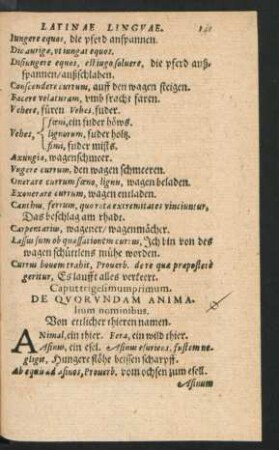 LATINAE LINGVAE.
Iungere equos, die pferd anspannen.
Dic aurigæ, vt iungat equos.
Disiungere equos, et iugo soluere, die pferd auß-
spannen/außschlahen.
Conscendere currum, auff den wagen steigen.
Facere velaturam, vmb fracht faren.
Vehere, füren Vehes, fuder.
Vehes, fœni, ein fuder höws.
lignorum, fuder holtz.
fimi, fuder mists.
Axungia, wagenschmeer.
Vngere currum, den wagen schmeeren.
Onerare currum fœno, lignis, wagen beladen.
Exonerare currum, wagen entladen.
Canthus, ferrum, quo rotæ extremitates vinciuntur,
Das beschlag am rhadt.
Carpentarius, wagener/ wagenmächer.
Lassus sum ob quassationem currus, Ich bin von des
wagen schüttlens mühe worden.
Currus bouem trahit, Prouerb. de re quæ præposterè
geritur, Es laufft alles verkeert.
Caput trigesimumprimum.
DE QVORVNDAM ANIMA-
lium nominibus.
Von ettlicher thieren namen.
ANimal, ein thier. Fera, ein wild thier.
Asinus, ein esel. Asinus esuriens, fustem ne-
gligit, Hungere flöhe beissen scharpff.
Ab equis ad asinos, Prouerb. vom ochsen zum esell.
Asinum